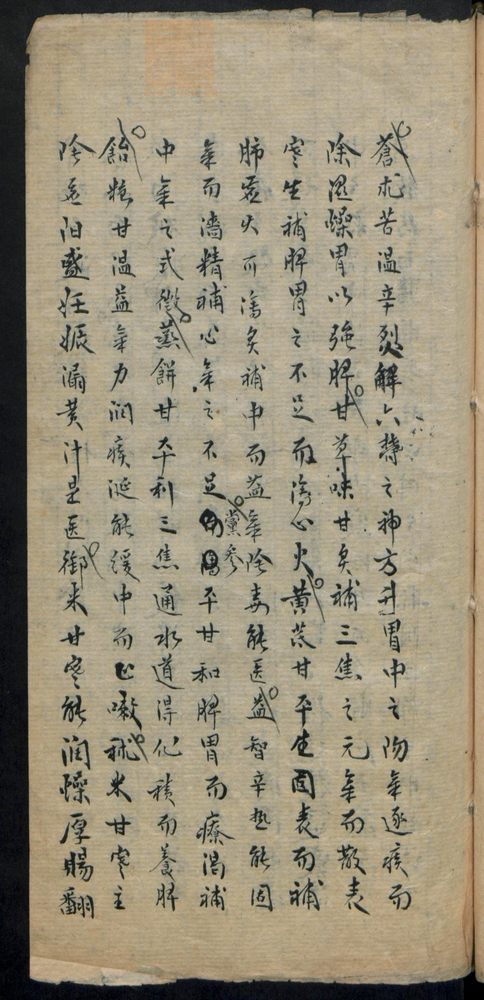 蒼朮苦温辛烈解六欝之神方升胃中之阳氣逐痰而
除湿燥胃以強脾甘草味甘炙補三焦之元氣而散表
寒生補脾胃之不足而瀉心火黄茋甘平生固表而補
肺虚火而瀉炙補中而益氣除毒能医益智辛热能固
氣而濇精補心氣之不足党参平甘和脾胃而療渴補
中氣之式微蒸餅甘平利三焦通水道得化積而養脾
飴糖甘温益氣力润痰涎能缓中而止嗽秫米甘寒主
除虚阳盛妊娠漏黄汁是医御米甘寒能润燥厚腸翻